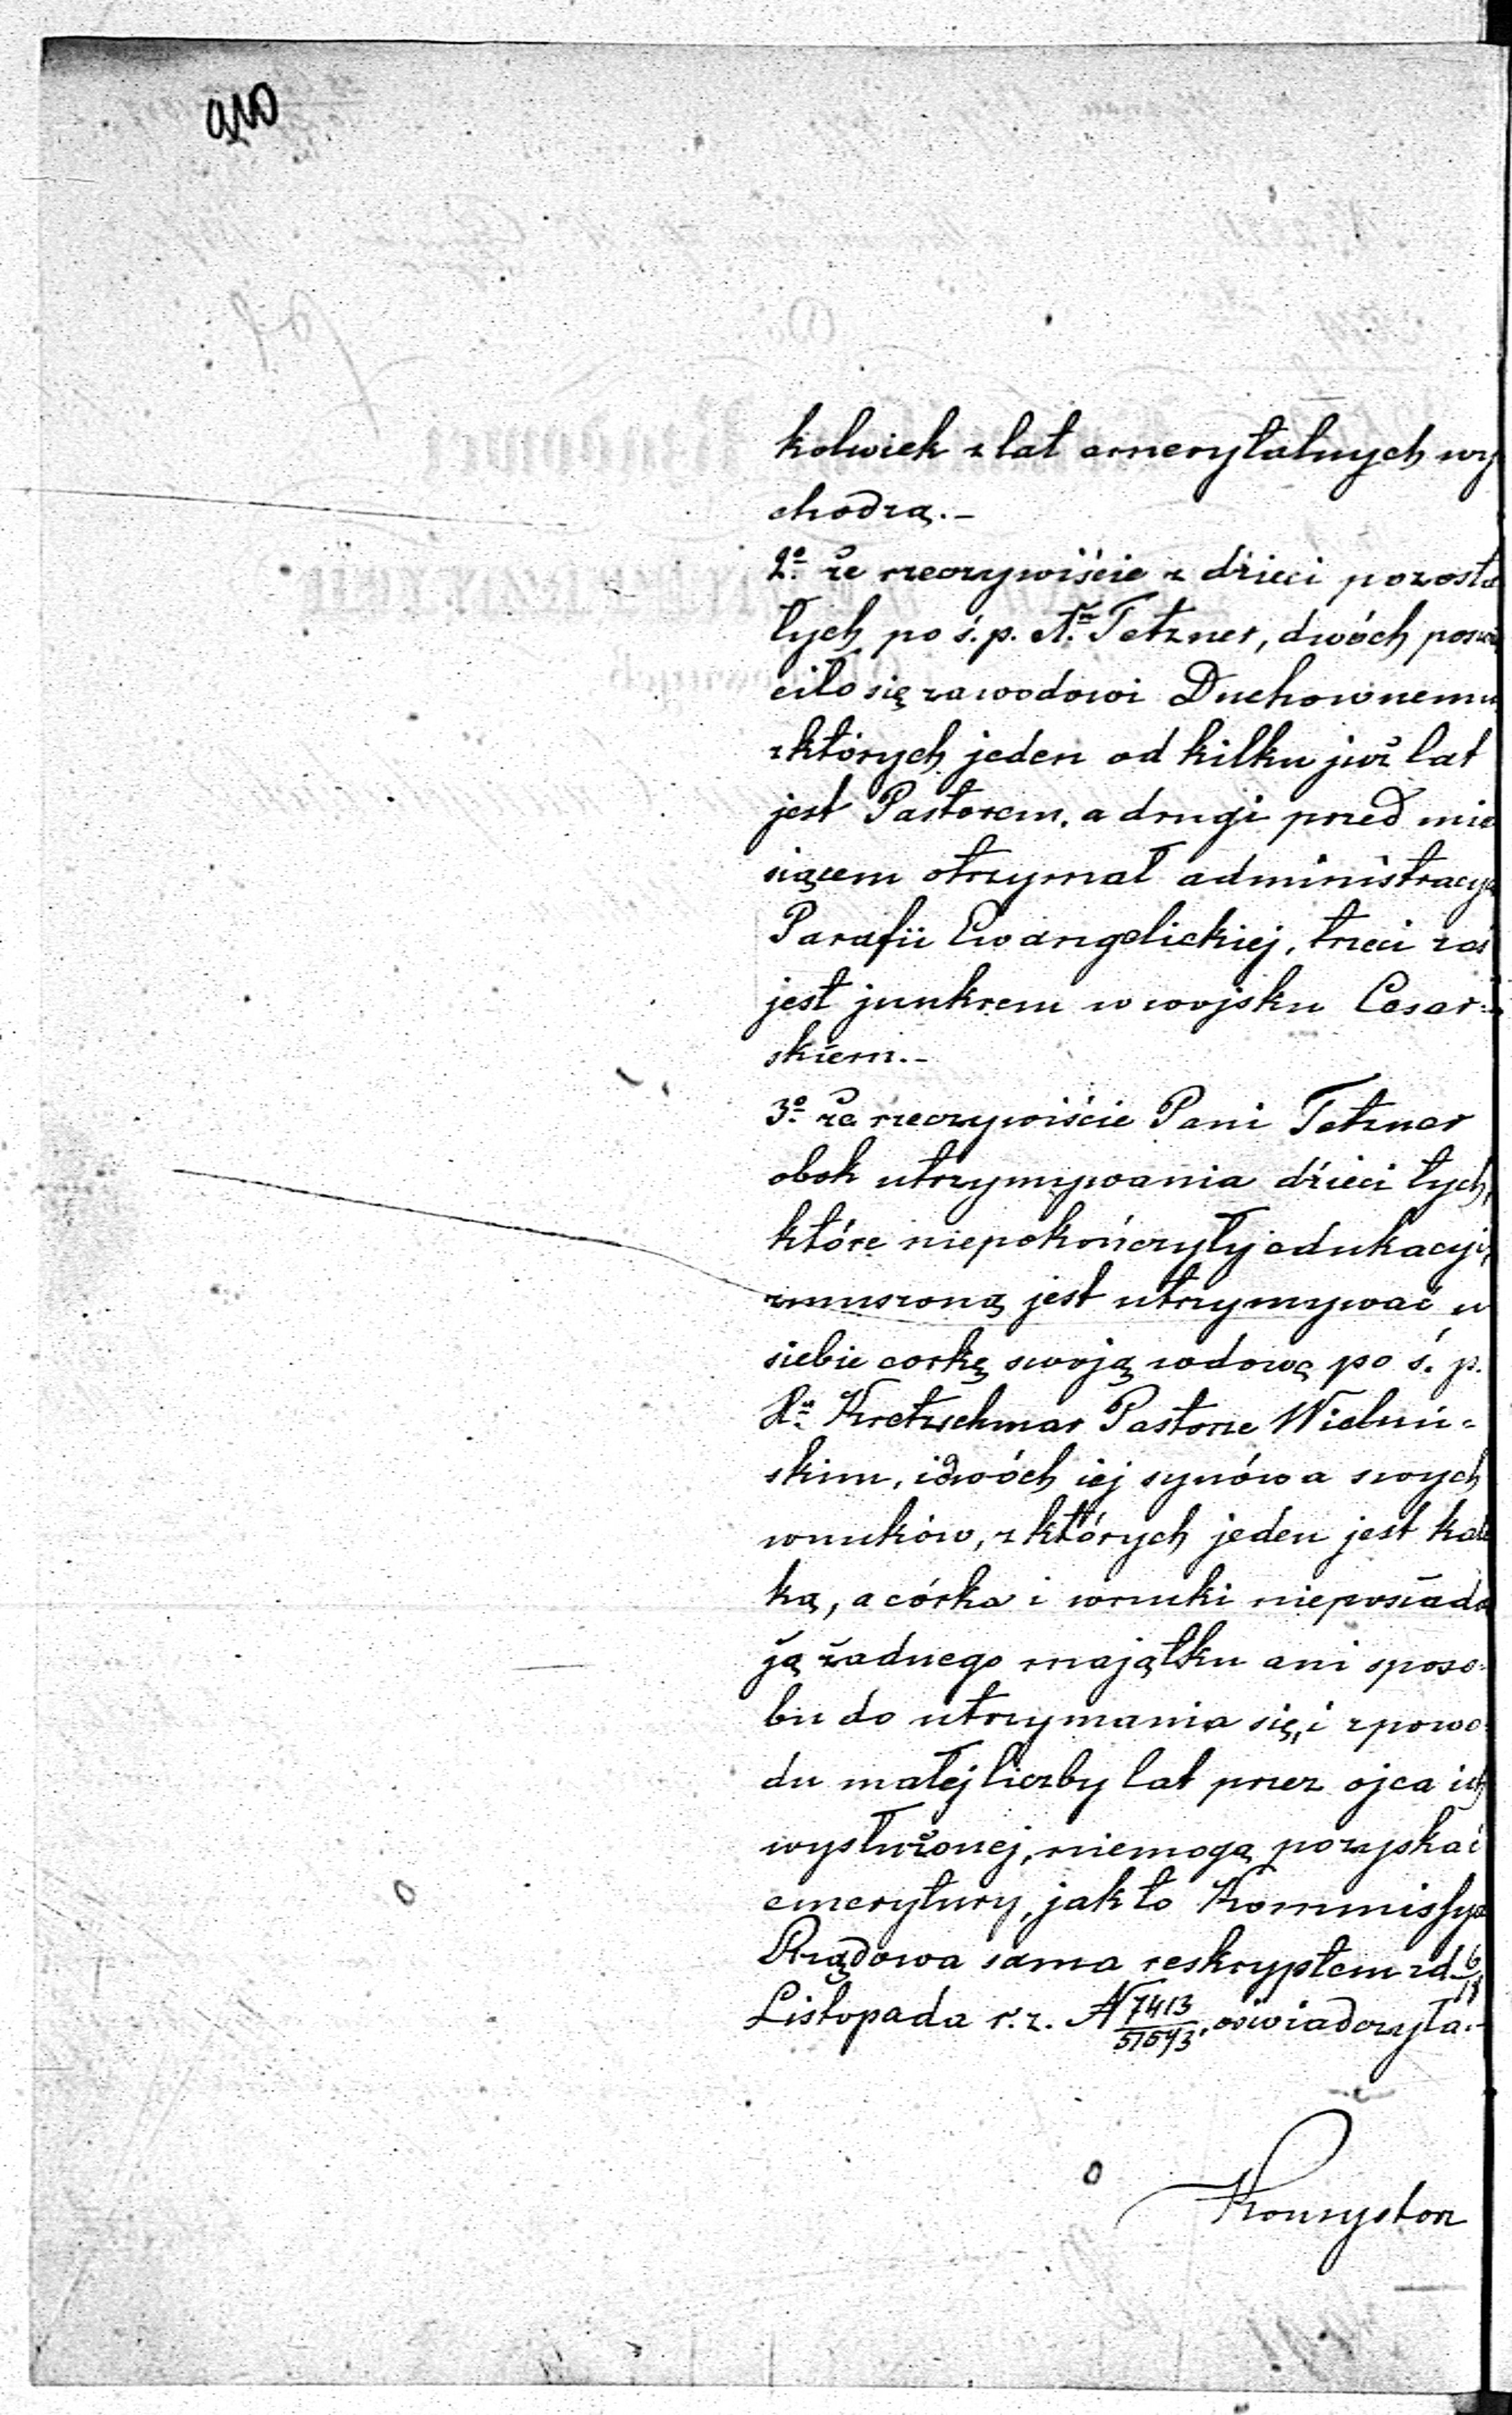 210
kolwiek z lat emerytalnych wy
chodzą.-
2º że rzeczywiście z dzieci pozosta
łych po ś.p. Tetzner, dwóch poswię
ciło się zawodowi Duchownemu
z których jeden od kilku już lat
jest Pastorem, a drugi przed mie
siącem otrzymał administracyą
Parafii Ewangelickiej, trzeci zaś
jest junkrem w wojsku Cesar=
skiem.-
3º że rzeczywiście Pani Tetzner
obok utrzymywania dzieci tych,
które niepokończyły edukacyi,
zmuszoną jest utrzymywać u
siebie corkę swoją wdowę po ś. p.
Kretzschmar Pastorze Wieluń=
skim, i dwóch iej synów a swych
wnuków, z których jeden jest kale
ką, a córka i wnuki nieposiada
ją żadnego majątku ani sposo=
bu do utrzymania się, i z powo=
du małej liczby lat przez ojca ich
wysłużonej, niemogą pozyskać
emerytury, jak to Kommissya
Rządowa sama reskryptem z d. 6/18
Listopada r. z. N 7413/51593. oświadczyła.-